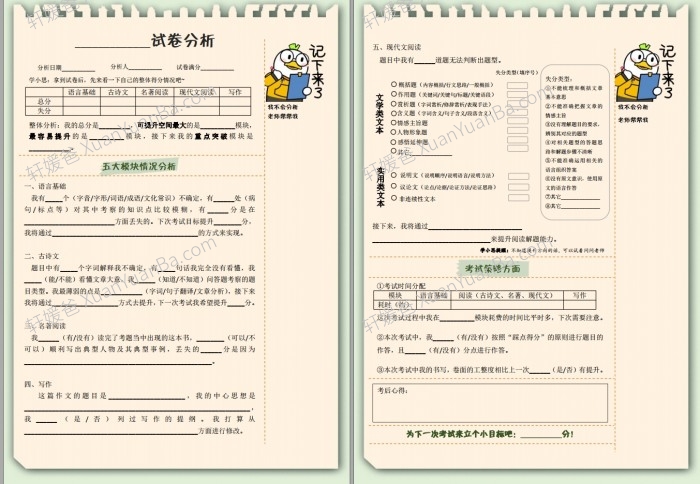 ____________试卷分析
分析日期________ 分析人________ 试卷满分________
学小思：拿到试卷后，先来看一下自己的整体得分情况吧~
语言基础 古诗文 名著阅读 现代文阅读 写作
总分
失分
整体分析：我的总分是______，可提升空间最大的是________模块，
最容易提升的是________模块，接下来我的重点突破模块是
________。
五大模块情况分析
一、语言基础
我有____个（字音/字形/词语/成语/文化常识）不确定，有____处（病
句/标点等）对其中考察的知识点比较模糊，有____分是在
________________方面丢失的。下次考试目标提升______分，
我将通过________________________的方式来实现。
二、古诗文
题目中有____个字词解释我不确定，有____句话我完全没有看懂，我
____（能/不能）看懂文章大意，我____（知道/不知道）问答题考察的题
目类型。我最薄弱的点是________（字词/句子翻译/文章分析），接下来
我将通过____________方式去提升，下一次考试我希望提升____分。
三、名著阅读
我____（有/没有）读完了考题当中出现的这本书，______（可以/不
可以）顺利写出典型人物及其典型事例，丢失的____分是因为
________________________________。
四、写作
这篇作文的题目是________________，我的中心思想是
________________________________，
我____（是/否）列过写作的提纲。我打算从
________________________________方面进行修改。
记下来了
我不会分析
老师帮帮我
五、现代文阅读
题目中我有______道题无法判断出题型。
失分类型（填序号）
文学类文本
概括题（内容概括/行文思路/一般概括）
作用题（关键句/关键句/标题/关键情段）
赏析题（字词赏析/修辞赏析/表现手法）
含义题（字词含义/句子含义/段落含义）
情感主旨题
人物形象题
感悟延伸题
其它________________
实用类文本
说明文（说明顺序/说明语言/说明方法）
议论文（论点/论据/论证方法/论证思路）
非连续性文本
失分类型：
①不能梳理和概括文章
基本意思
②不能准确把握文章的
情感主旨
③没有理解题目的要求，
猜测其对应的题型
④对相关题型的答题思
路和解题步骤不清晰
⑤不能准确运用相关的
语言组织答案
⑥没有原文意识，使用原
文的语言作答
⑦其它________
⑧其它________
接下来，我将通过________________________
________________________来提升阅读解题能力。
学小思提醒：不知道提升方向的话，可以试着问问老师
考试策略方面
①考试时间分配
模块 语言基础 阅读（古诗文、名著、现代文） 写作
耗时（约）
这次考试过程中我在________模块耗费的时间比平时多，下次需要注意。
②本次考试中，我______（有/没有）按照“踩点得分”的原则进行题目的
作答，且______（有/没有）分点进行作答。
③本次考试中我的书写、卷面的工整度相比上一次______（是/否）有提升。
考后心得：
为下一次考试来立个小目标吧：________分！
记下来了
我不会分析
老师帮帮我
轩媛爸 XuanYuanBa.com